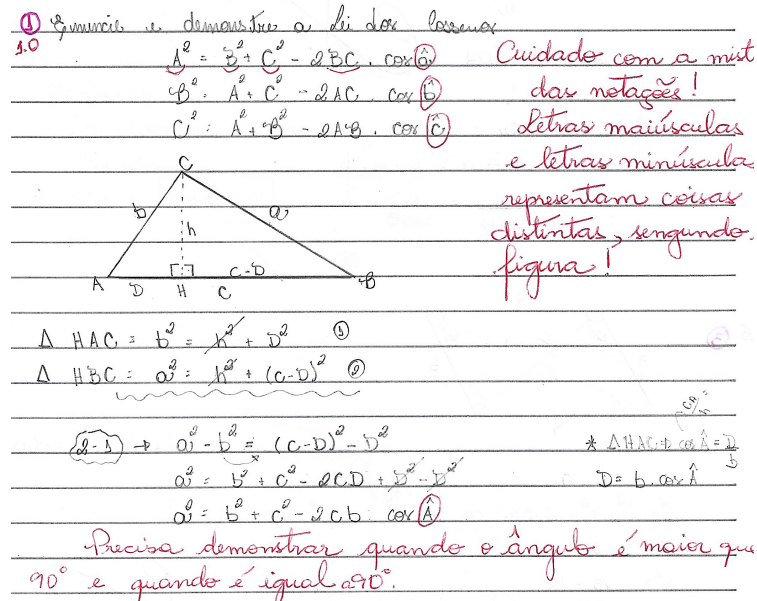 ① Enuncie e demonstre a Lei dos Cossenos
1.0
A² = B² + C² - 2BC . cos â
B² = A² + C² - 2AC . cos b̂
C² = A² + B² - 2AB . cos ĉ
Cuidado com a mist
das notações!
Letras maiúsculas
e letras minúscula
representam coisas
distintas, sengundo
figura!
C
b h a
C-D
A D H C B
Δ HAC = b² = h² + D² ①
Δ HBC = a² = h² + (C-D)² ②
2-1 → a² - b² = (C-D)² - D²
* Δ HAC ⇒ cos Â = D/b
a² = b² + C² - 2CD + D² - D²
D = b . cos Â
a² = b² + c² - 2cb . cos Â
Precisa demonstrar quando o ângulo é maior que
90° e quando é igual a 90°.